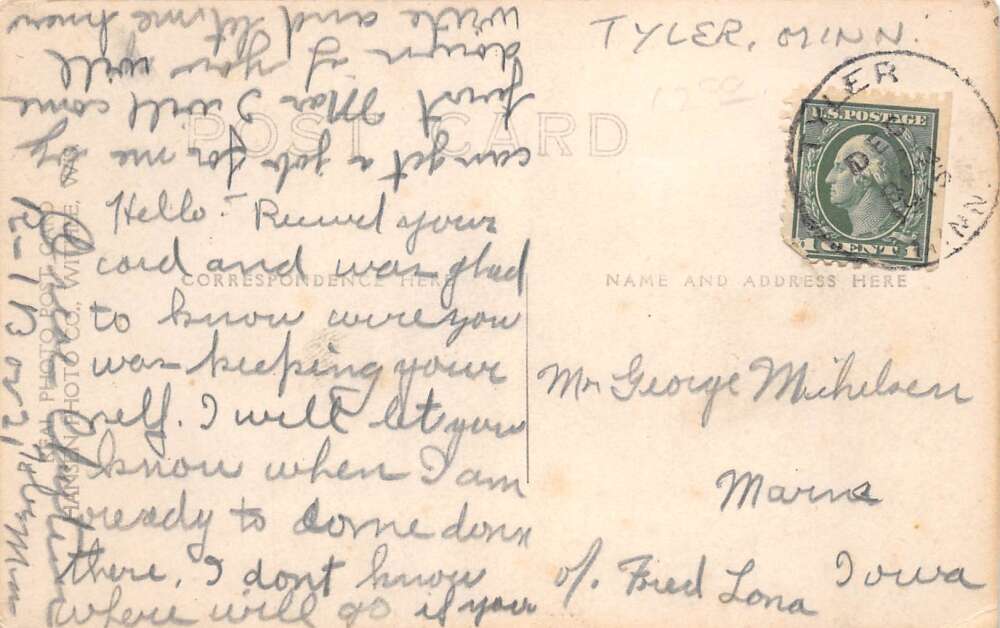 TYLER, MINN.
POST CARD
TYLER
DEC
MINN.
U.S. POSTAGE
1 CENT 1
CORRESPONDENCE HERE
NAME AND ADDRESS HERE
Hello - Recived your
card and was glad
to know were you
was keeping your
self. I will let you
know when I am
ready to come down
there, I dont know
where will go if you
can get a job for me by
first Mar I will come
down if you will
write and let me know
Tyler Minn
PHOTO POST CARD
HANSEN PHOTO CO.,
Mr George Michelsen
Marne
Iowa
c/. Fred Lona